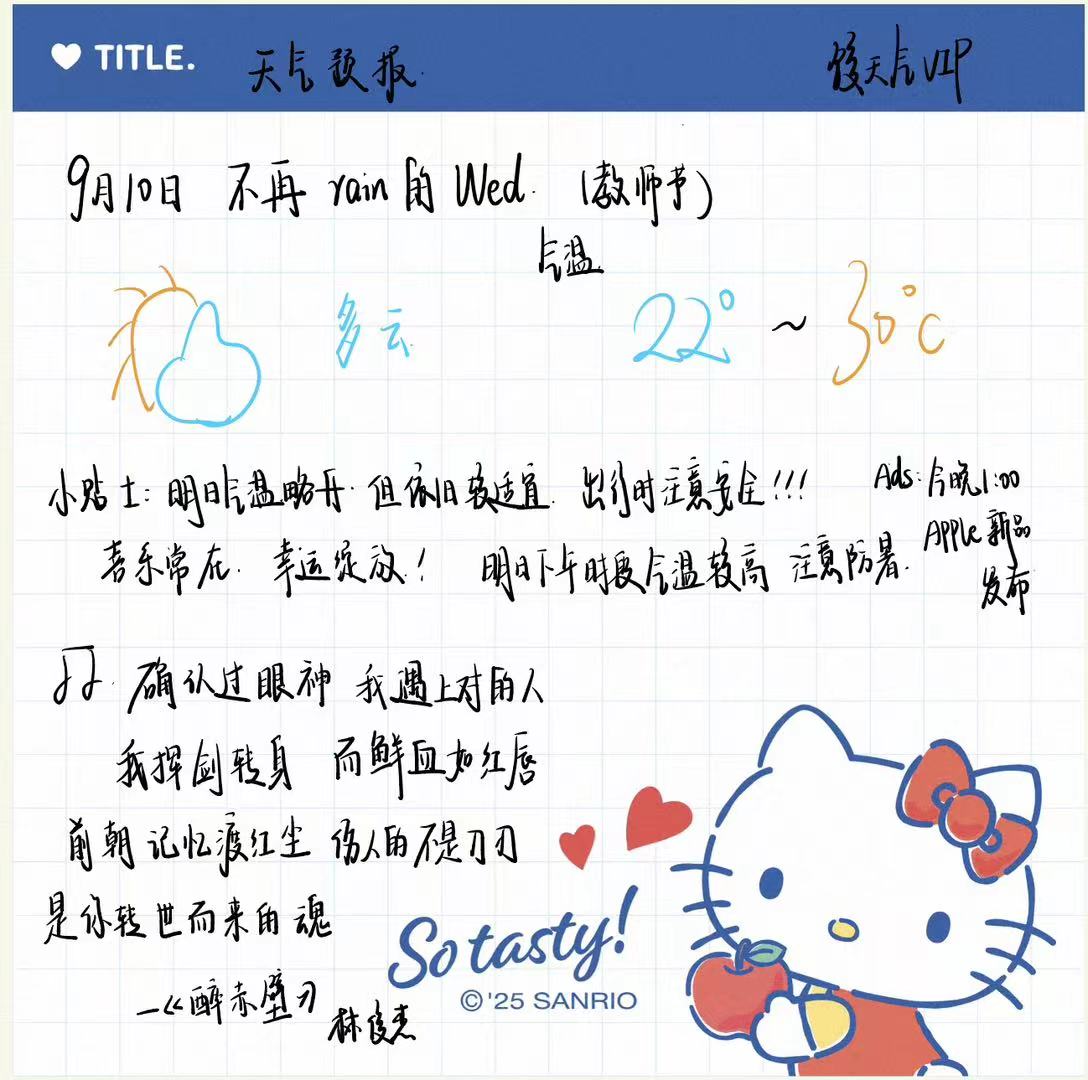 TITLE. 天气预报. 俊天气VIP
9月10日 不再 rain 的 Wed. (教师节)
气温
多云 22° ~ 30°C
小贴士: 明日气温略升. 但依旧较适宜. 出行时注意安全!!!
喜乐常在. 幸运绽放! 明日下午时段气温较高 注意防暑.
Ads: 今晚1:00
Apple 新品
发布
确认过眼神 我遇上对的人
我挥剑转身 而鲜血如红唇
前朝记忆渡红尘 伤人的不是刀刃
是你转世而来的魂
—《醉赤壁》
林俊杰
So tasty!
©'25 SANRIO